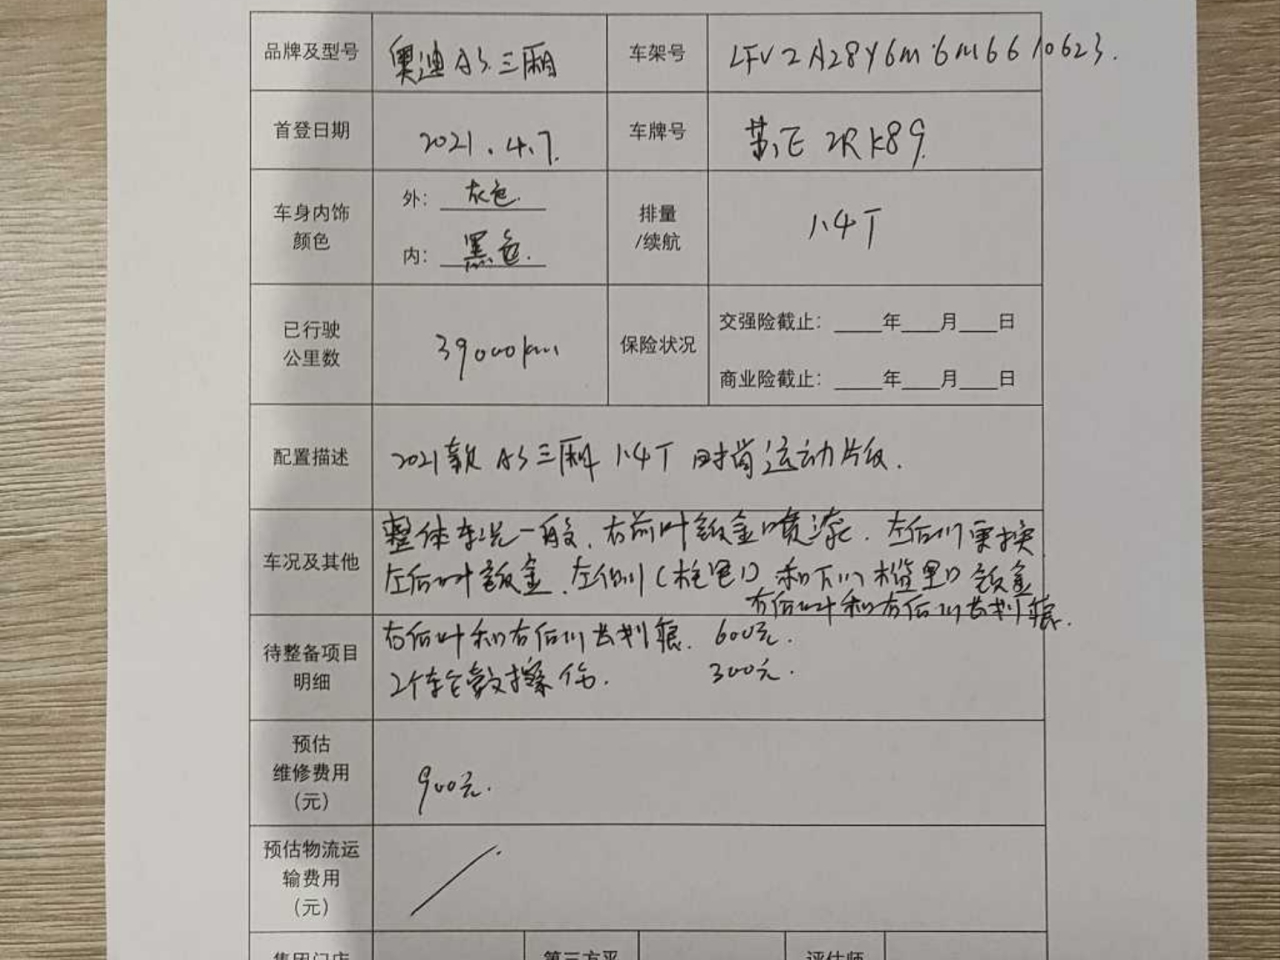 品牌及型号 奥迪A3.三厢 车架号 LFV2A28Y6M6M6610623.
首登日期 2021.4.7. 车牌号 苏E 2RK89.
车身内饰
颜色
外: 灰色.
内: 黑色.
排量
/续航
1.4T
已行驶
公里数
39000km
保险状况
交强险截止: 年 月 日
商业险截止: 年 月 日
配置描述 2021款 A3三厢 1.4T 时尚运动版.
车况及其他
整体车况一般. 右前叶钣金喷漆. 左后门更换
左后叶钣金. 左侧 和下 钣金
右后叶和右后门长划痕.
待整备项目
明细
右后叶和右后门长划痕. 600元.
2个车轮毂擦伤. 300元.
预估
维修费用
(元)
900元.
预估物流运
输费用
(元)
集团门店 第三方平 评估师